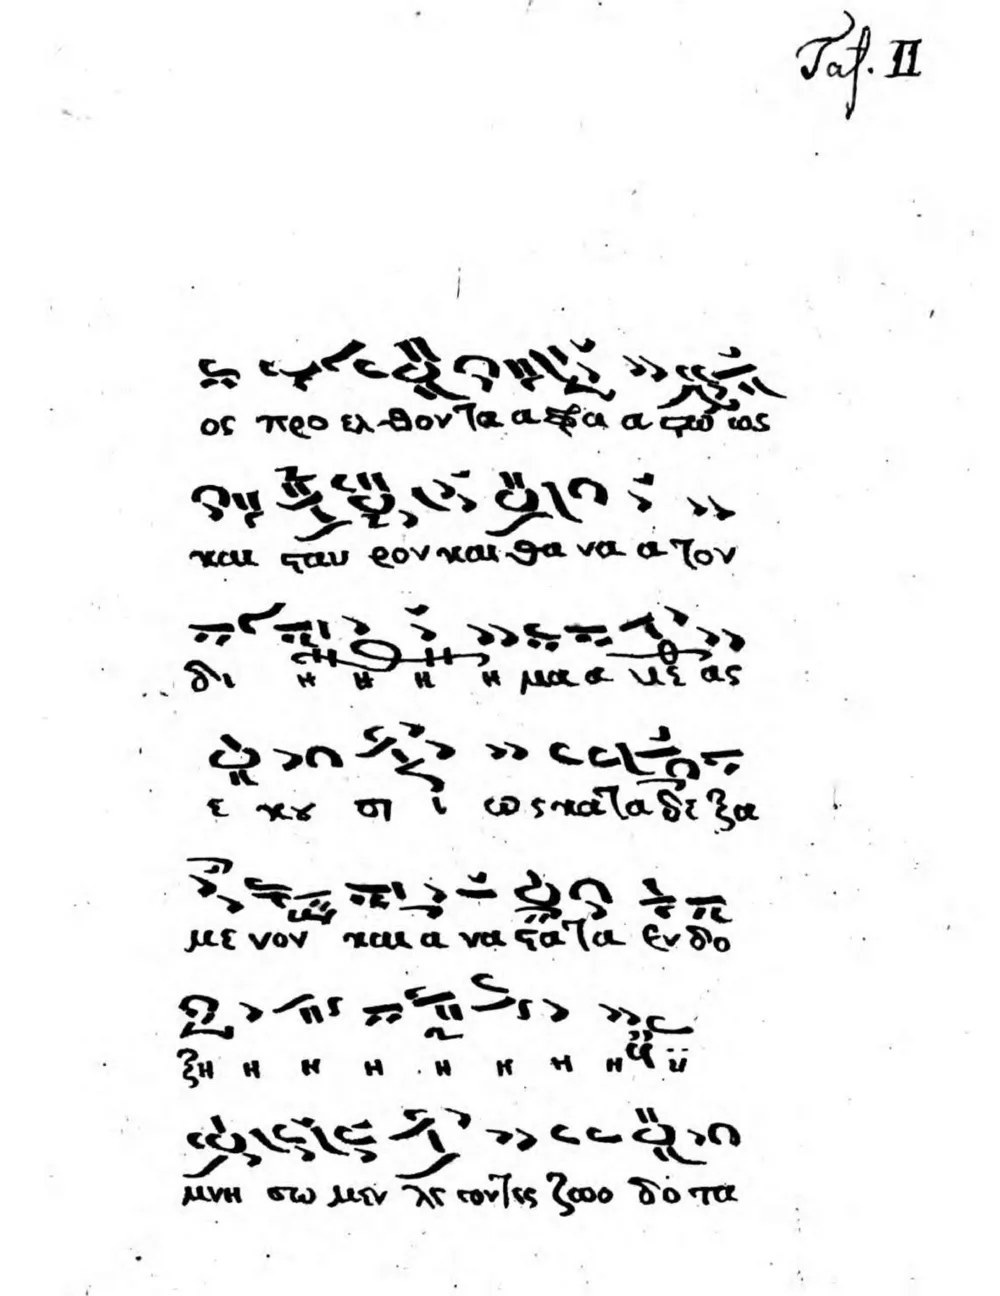 Taf. II
ος προ ελ θον τα α ξα α φρά ςως
και ςαυ ρον και θα να α τον
δι η η η η μα α με ας
ε κȣ σι ι ως κατα δε ξα
με νον και α να ςα τα εν δο
ξη η η η η η η η ϋ
μνη σω μεν λε γοντες ζωο δο τα